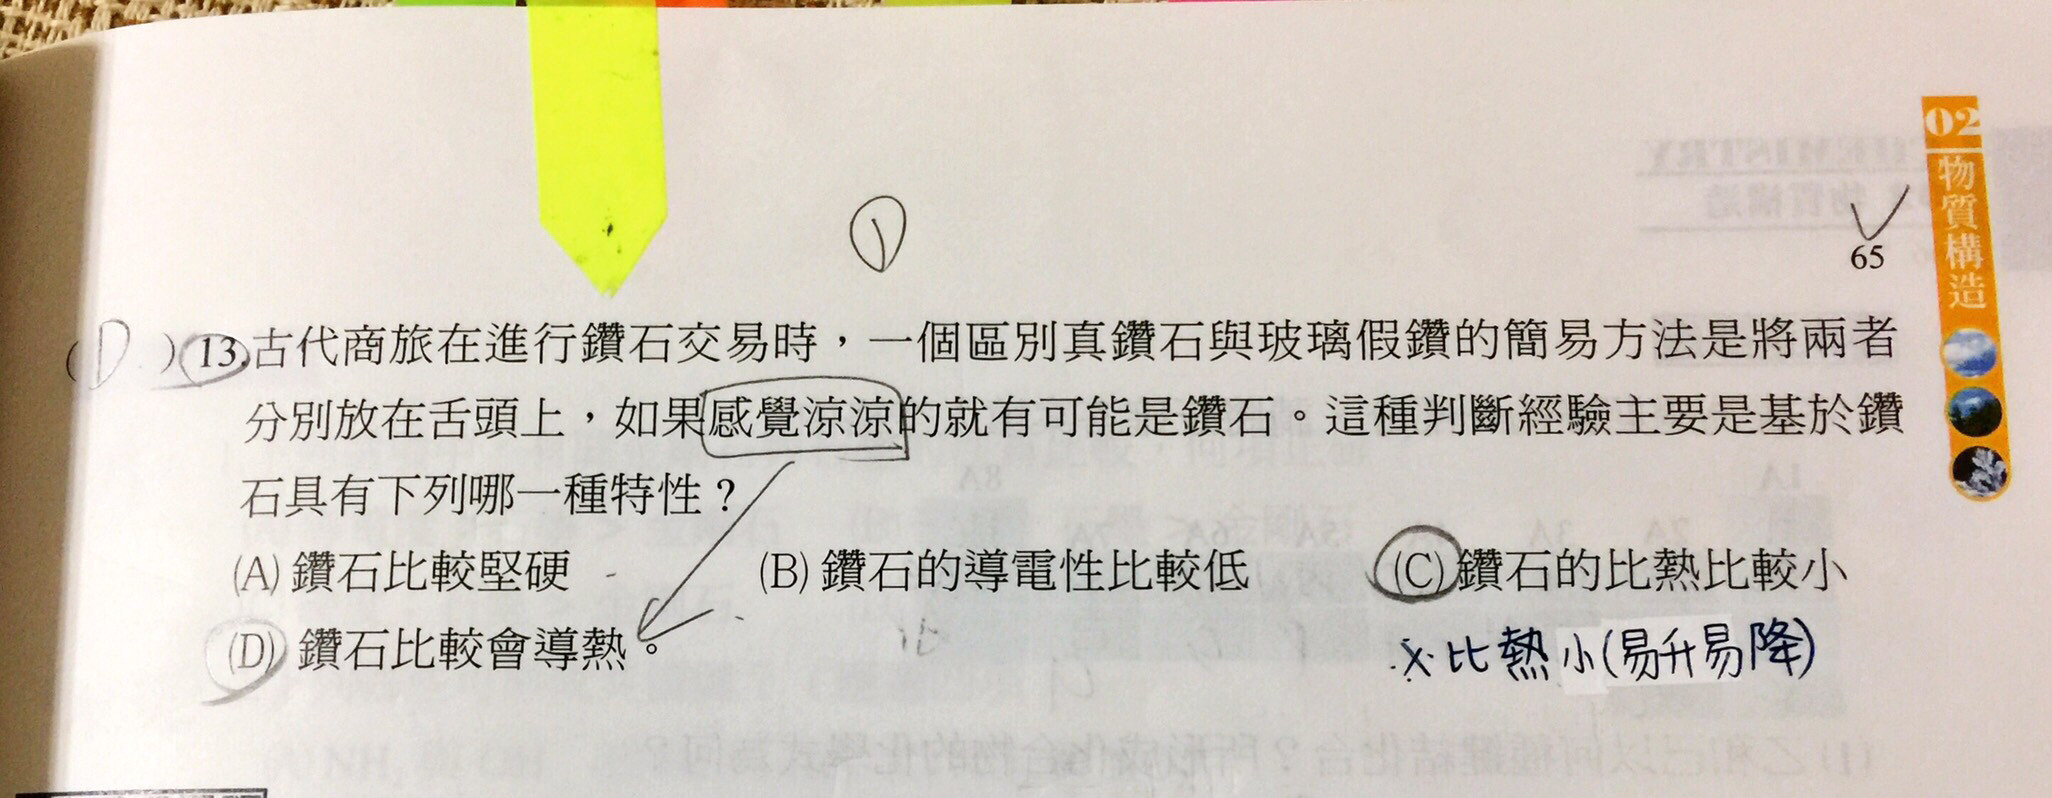 02 物質構造
65
(D) 13.古代商旅在進行鑽石交易時，一個區別真鑽石與玻璃假鑽的簡易方法是將兩者
分別放在舌頭上，如果感覺涼涼的就有可能是鑽石。這種判斷經驗主要是基於鑽
石具有下列哪一種特性？
(A) 鑽石比較堅硬 (B) 鑽石的導電性比較低 (C) 鑽石的比熱比較小
(D) 鑽石比較會導熱。
比熱小(易升易降)